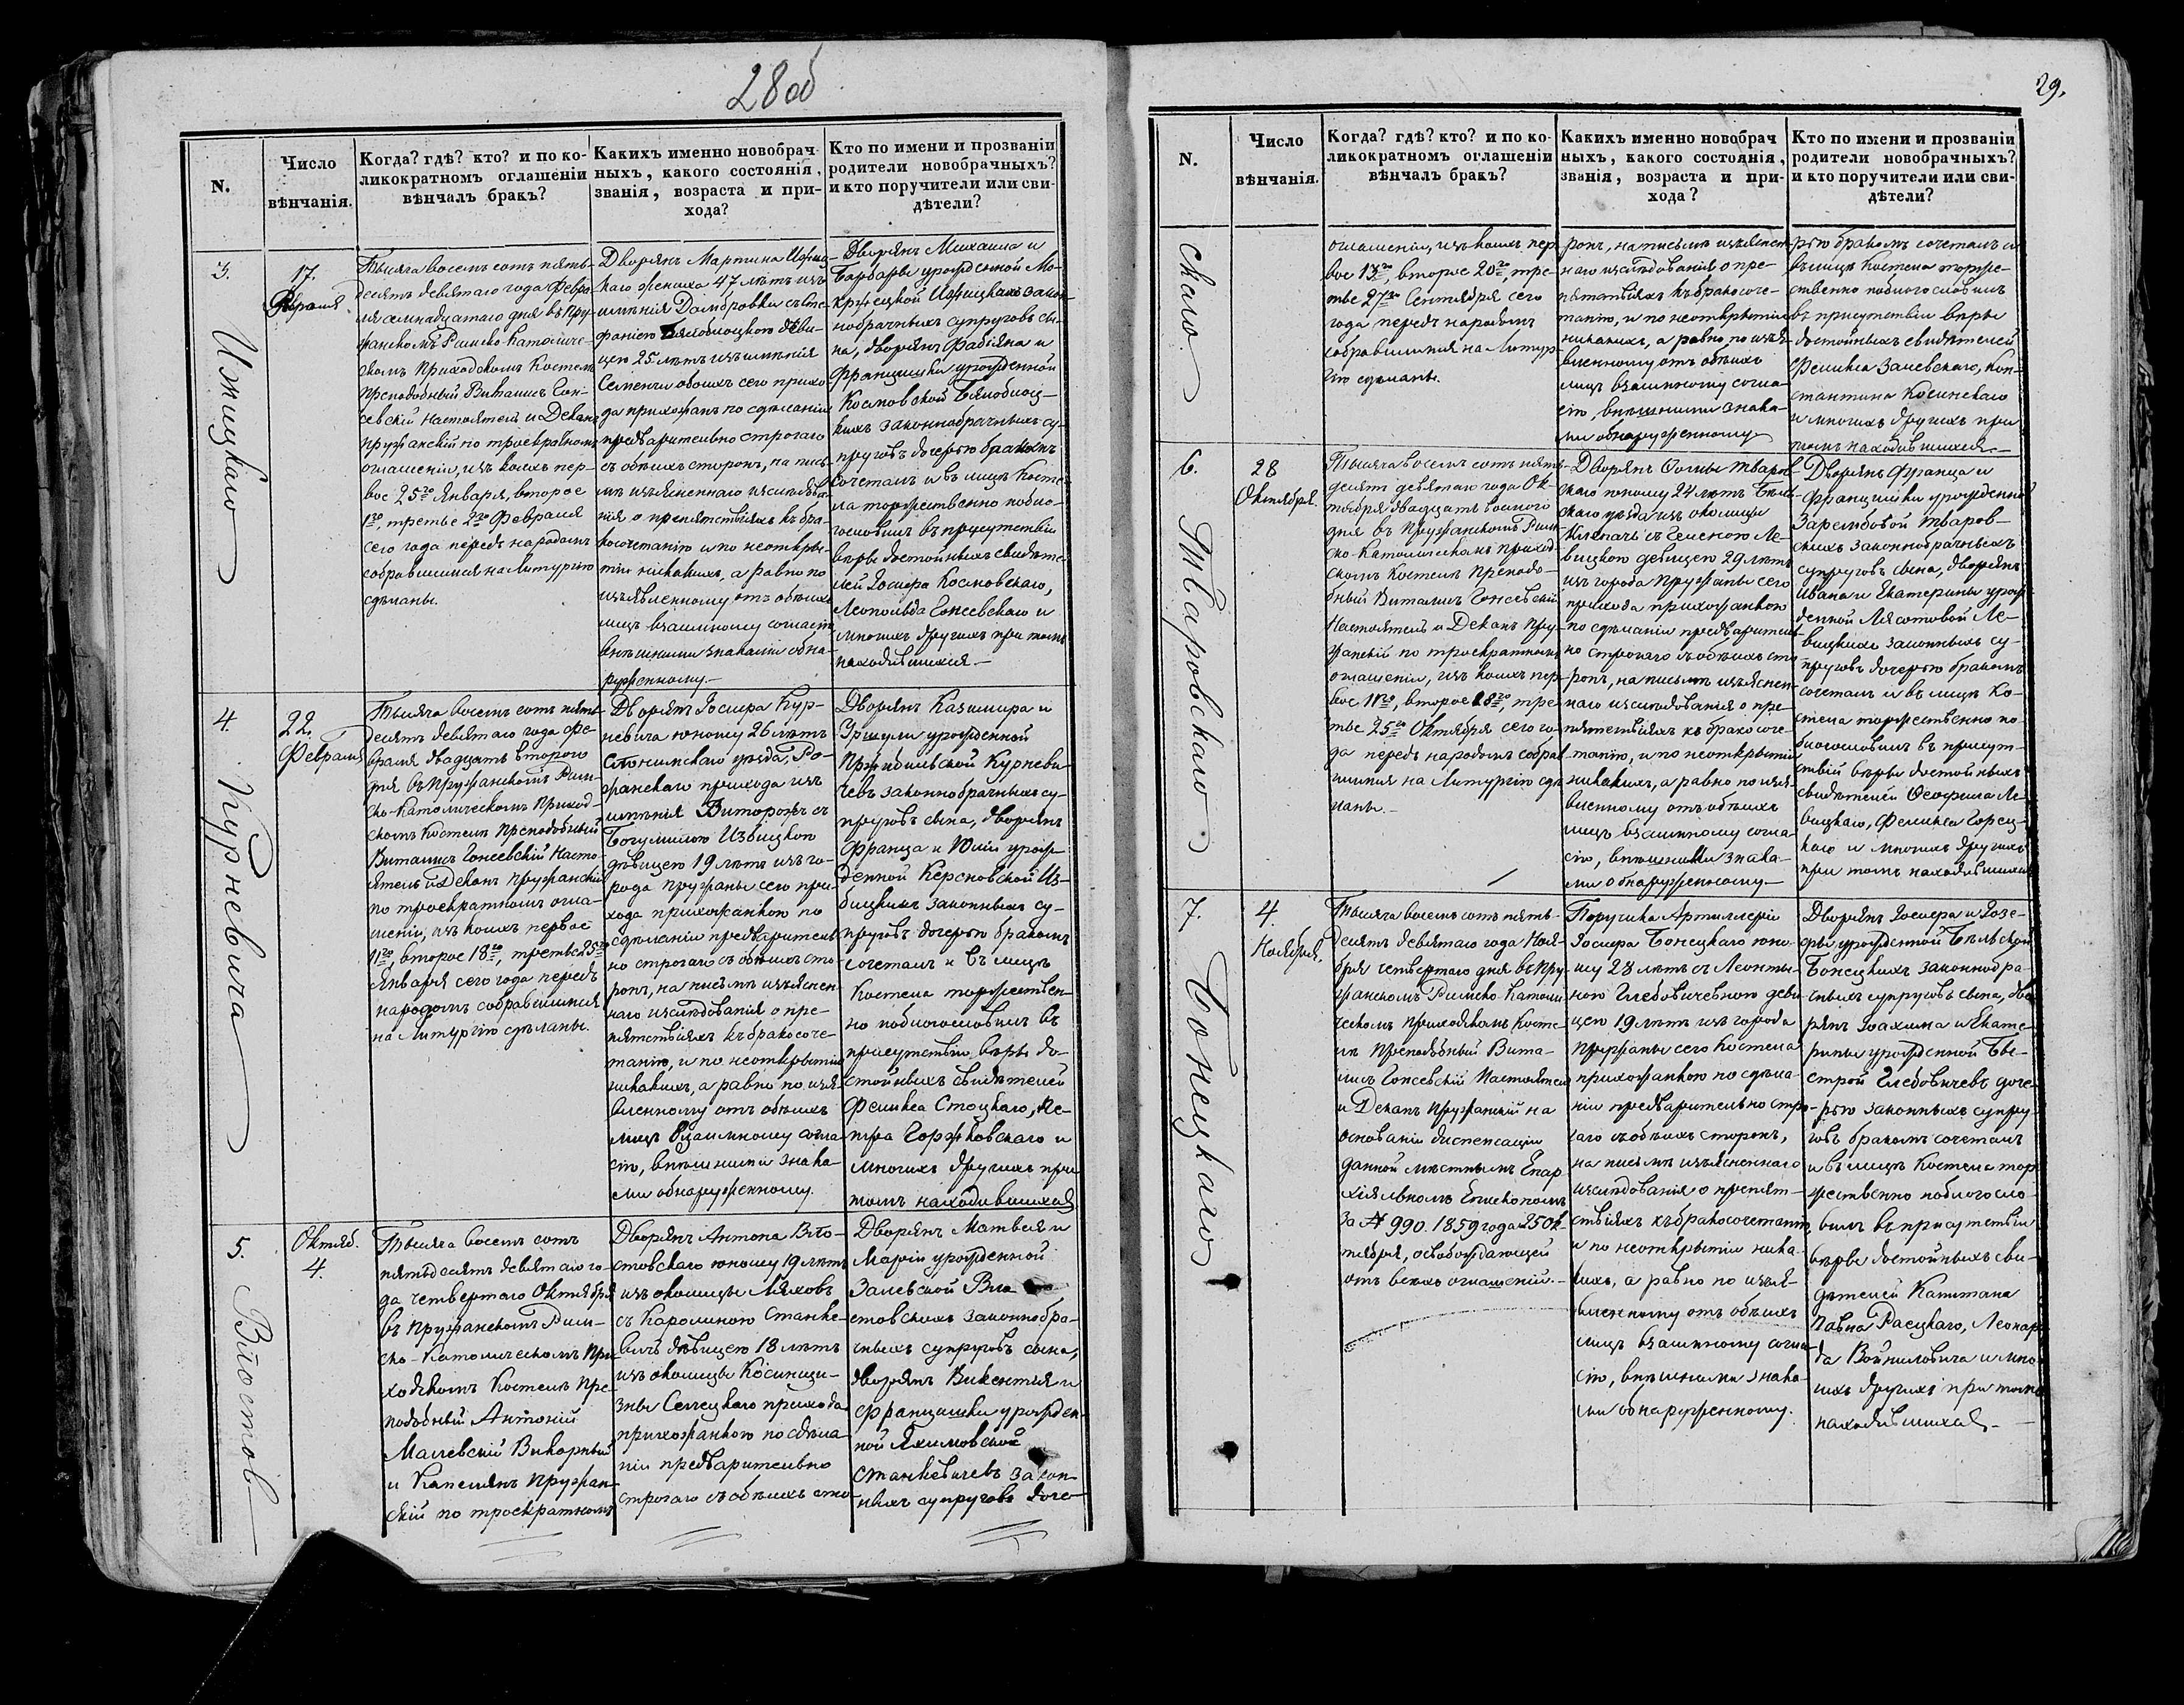 28 об
N.
Число
вѣнчанія.
Когда? гдѣ? кто? и по ко-
ликократномъ оглашеніи
вѣнчалъ бракъ?
Какихъ именно новобрач
ныхъ, какого состоянія,
званія, возраста и при-
хода?
Кто по имени и прозваніи
родители новобрачныхъ?
и кто поручители или сви-
дѣтели?
3.
Ижицкаго
17.
Февраля
Тысяча восемь сотъ пять-
десятъ девятаго года Февра-
ля семнадцатаго дня въ Пру-
жанскомъ Римско Католиче-
скомъ Приходскомъ Костелѣ
Преподобный Виталисъ Гон-
севскій Настоятель и Деканъ
Пружанскій по троекратномъ
оглашеніи, изъ коихъ пер-
вое 25го Января, второе
1го, третье 2го Февраля
сего года передъ народомъ
собравшимся на Литургію
сдѣланы.
Дворянъ Мартина Ижиц-
каго жениха 47 лѣтъ изъ
имѣнія Домбровки съ Сте-
фаніею Бялоблоцкою дѣви-
цею 25 лѣтъ изъ имѣнія
Семенчи обоихъ сего прихо
да прихожанъ по сдѣланіи
предварительно строгаго
съ обѣихъ сторонъ, на пись-
мѣ изъясненнаго изслѣдова-
нія о препятствіяхъ къ бра-
косочетанію и по неоткры-
тіи никакихъ, а равно по
изъявленному отъ обѣихъ
лицъ взаимному согласію
внѣшними знаками обна-
руженному.—
Дворянъ Михаила и
Барбары урожденной Мо-
кржецкой Ижицкихъ закон-
нобрачныхъ супруговъ сы-
на, дворянъ Фабіяна и
Францишки урожденной
Космовской Бялоблоц-
кихъ законнобрачныхъ су-
пруговъ дочерью бракомъ
сочеталъ и въ лицѣ Косте-
ла торжественно побло-
гословилъ въ присутствіи
вѣры достойныхъ свидѣте-
лей Іосифа Космовскаго,
Леопольда Гонсевскаго и
многихъ другихъ при томъ
находившихся—
4.
Курневича
22.
Февраля
Тысяча восемь сотъ пять
десятъ девятаго года Фе-
враля двадцать втораго
дня въ Пружанскомъ Рим-
ско-Католическомъ Приход-
скомъ Костелѣ Преподобный
Виталисъ Гонсевскій Насто-
ятель и Деканъ Пружанскій
по троекратномъ огла-
шеніи, изъ коихъ первое
11го, второе 18го, третье 25го
Января сего года передъ
народомъ собравшимся
на Литургію сдѣланы.
Дворянъ Іосифа Кур-
невича юношу 26 лѣтъ
Слонимскаго уѣзда, Ро-
жанскаго прихода изъ
имѣнія Виторожъ съ
Богумилою Избицкою
дѣвицею 19 лѣтъ изъ го-
рода Пружаны сего при-
хода прихожанкою по
сдѣланіи предваритель-
но строгаго съ обѣихъ сто-
ронъ, на письмѣ изъяснен-
наго изслѣдованія о пре-
пятствіяхъ къ бракосоче-
танію, и по неоткрытіи
никакихъ, а равно по изъя-
вленному отъ обѣихъ
лицъ взаимному согла-
сію, внѣшними знака-
ми обнаруженному.
Дворянъ Казимира и
Уршули урожденной
Пржибыльской Курневи-
чевъ законнобрачныхъ су-
пруговъ сына, дворянъ
Франца и Юліи урож-
денной Керсновской Из-
бицкихъ законныхъ су-
пруговъ дочерью бракомъ
сочеталъ и въ лицѣ
Костела торжествен-
но поблогословилъ въ
присутствіи вѣры до-
стойныхъ свидѣтелей
Феликса Стоцкаго, Пе-
тра Горжковскаго и
многихъ другихъ при
томъ находившихся
5.
Влостов—
Октяб.
4.
Тысяча восемь сотъ
пятьдесятъ девятаго го-
да четвертаго Октября
въ Пружанскомъ Рим-
ско-Католическомъ При-
ходскомъ Костелѣ Пре-
подобный Антоній
Малевскій Викарный
и Капелянъ Пружан-
скій по троекратномъ
Дворянъ Антона Вло-
стовскаго юношу 19 лѣтъ
изъ околицы Ляховъ
съ Каролиною Станке-
вичъ дѣвицею 18 лѣтъ
изъ околицы Косинщи-
зны Селецкаго прихода
прихожанкою по сдѣла-
ніи предварительно
строгаго съ обѣихъ сто-
Дворянъ Матвея и
Маріи урожденной
Залевской Вло
стовскихъ законнобра-
чныхъ супруговъ сына,
дворянъ Викентія и
Францишки урожден-
ной Яхимовской
Станкевичевъ закон-
ныхъ супруговъ доче-
29.
N.
Число
вѣнчанія.
Когда? гдѣ? кто? и по ко-
ликократномъ оглашеніи
вѣнчалъ бракъ?
Какихъ именно новобрач
ныхъ, какого состоянія,
званія, возраста и при-
хода?
Кто по имени и прозваніи
родители новобрачныхъ?
и кто поручители или сви-
дѣтели?
скаго
оглашеніи, изъ коихъ пер
вое 13го, второе 20го, тре-
тье 27го Сентября сего
года передъ народомъ
собравшимся на Литур-
гію сдѣланы.
ронъ, на письмѣ изъяснен
наго изслѣдованія о пре-
пятствіяхъ къ бракосоче-
танію, и по неоткрытіи
никакихъ, а равно по изъя-
вленному отъ обѣихъ
лицъ взаимному согла-
сію, внѣшними знака-
ми обнаруженному
рью бракомъ сочеталъ и
въ лицѣ Костела торже-
ственно поблогословилъ
въ присутствіи вѣры
достойныхъ свидѣтелей
Феликса Залевскаго, Кон-
стантина Косинскаго
и многихъ другихъ при
томъ находившихся—
6.
Тваровскаго
28
Октября.
Тысяча восемь сотъ пять-
десятъ девятаго года Ок-
тября двадцать восьмаго
дня въ Пружанскомъ Рим-
ско-Католическомъ приход-
скомъ Костелѣ Преподо-
бный Виталисъ Гонсевскій
Настоятель и Деканъ Пру-
жанскій по троекратномъ
оглашеніи, изъ коихъ пер-
вое 11го, второе 18го, тре-
тье 25го Октября сего го-
да передъ народомъ собрав
шимся на Литургію сдѣ
ланы.—
Дворянъ Фомы Тваров-
скаго юношу 24 лѣтъ Бѣль-
скаго уѣзда изъ околицы
съ Еленою Ле-
вицкою дѣвицею 29 лѣтъ
изъ города Пружаны сего
прихода прихожанкою
по сдѣланіи предваритель-
но строгаго съ обѣихъ сто
ронъ, на письмѣ изъяснен-
наго изслѣдованія о пре-
пятствіяхъ къ бракосоче-
танію, и по неоткрытіи
никакихъ, а равно по изъя-
вленному отъ обѣихъ
лицъ взаимному согла-
сію, внѣшними знака-
ми обнаруженному—
Дворянъ Франца и
Францишки урожденной
Зарембовой Тваров-
скихъ законнобрачныхъ
супруговъ сына, дворянъ
Ивана и Екатерины урож-
денной Лясотовой Ле-
вицкихъ законныхъ су-
пруговъ дочерью бракомъ
сочеталъ и въ лицѣ Ко-
стела торжественно по-
блогословилъ въ присут-
ствіи вѣры достойныхъ
свидѣтелей Ѳеофила Ле-
вицкаго, Феликса Горец-
каго и многихъ другихъ
при томъ находившихся
7.
Бонецкаго
4.
Ноября.
Тысяча восемь сотъ пять-
десятъ девятаго года Нояб-
бря четвертаго дня въ Пру-
жанскомъ Римско-Католи
ческомъ приходскомъ Косте-
лѣ Преподобный Вита-
лисъ Гонсевскій Настоятель
и Деканъ Пружанскій на
основаніи диспенсаціи
данной мѣстнымъ Епар
хіяльномъ Епископомъ
за № 990. 1859 года 25 Ок-
тября, освобождающей
отъ всѣхъ оглашеній.—
Поручика Артиллеріи
Іосифа Бонецкаго юно-
шу 28 лѣтъ съ Леонты-
ною Глебовичевною дѣви
цею 19 лѣтъ изъ города
Пружаны сего Костела
прихожанкою по сдѣла-
ніи предварительно стро-
гаго съ обѣихъ сторонъ,
на письмѣ изъясненнаго
изслѣдованія о препят-
ствіяхъ къ бракосочетанію,
и по неоткрытіи ника
кихъ, а равно по изъя-
вленному отъ обѣихъ
лицъ взаимному согла-
сію, внѣшними знака-
ми обнаруженному.
Дворянъ Іосифа и Юзе-
фы урожденной Бѣльской
Бонецкихъ законнобра-
чныхъ супруговъ сына, дво
рянъ Іоахима и Екате-
рины урожденной Бы-
строй Глебовичевъ доче-
рью законныхъ супру-
говъ бракомъ сочеталъ
и въ лицѣ Костела тор
жественно поблогосло-
вилъ въ присутствіи
вѣры достойныхъ сви-
дѣтелей Капитана
Павла Раецкаго, Леонар
да Войниловича и мно
гихъ другихъ при томъ
находившихся.—